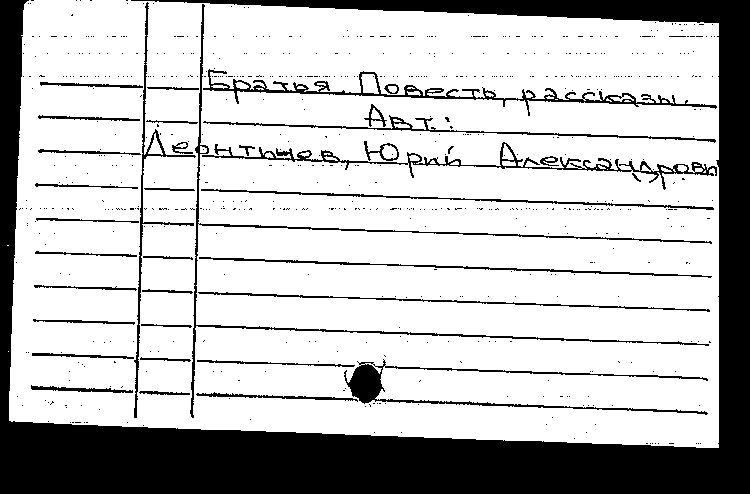 Братья. Повесть, рассказы.
Авт.:
Леонтьев, Юрий Александрови